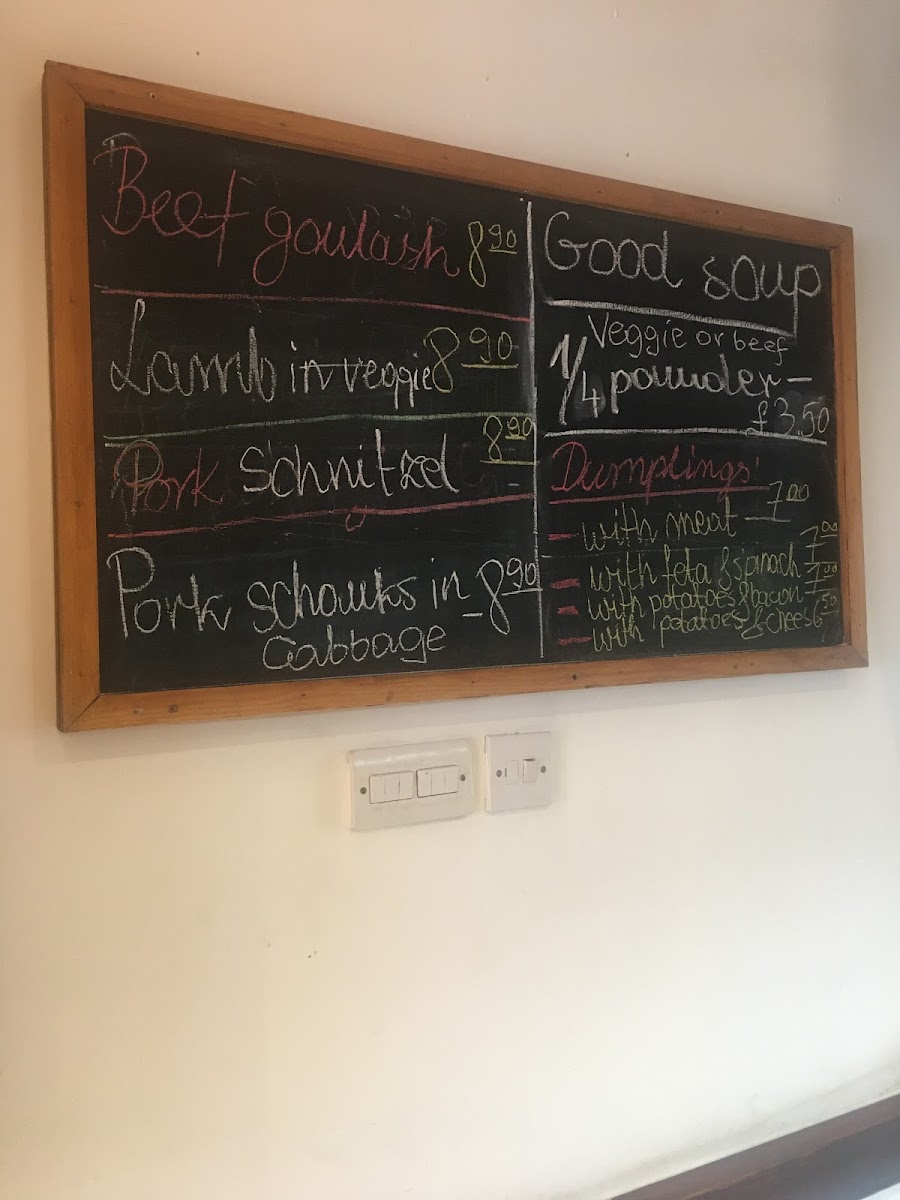 Beef goulash 8.90
Lamb in veggie 8.90
Pork Schnitzel 8.90
Pork schouks in - 8.90
Cabbage
Good soup
Veggie or beef
1/4 pounder -
£3.50
Dumplings:
- with meat - 7.00
- with feta & spinach 7.00
- with potatoes & bacon 7.00
- with potatoes & chees 6.50